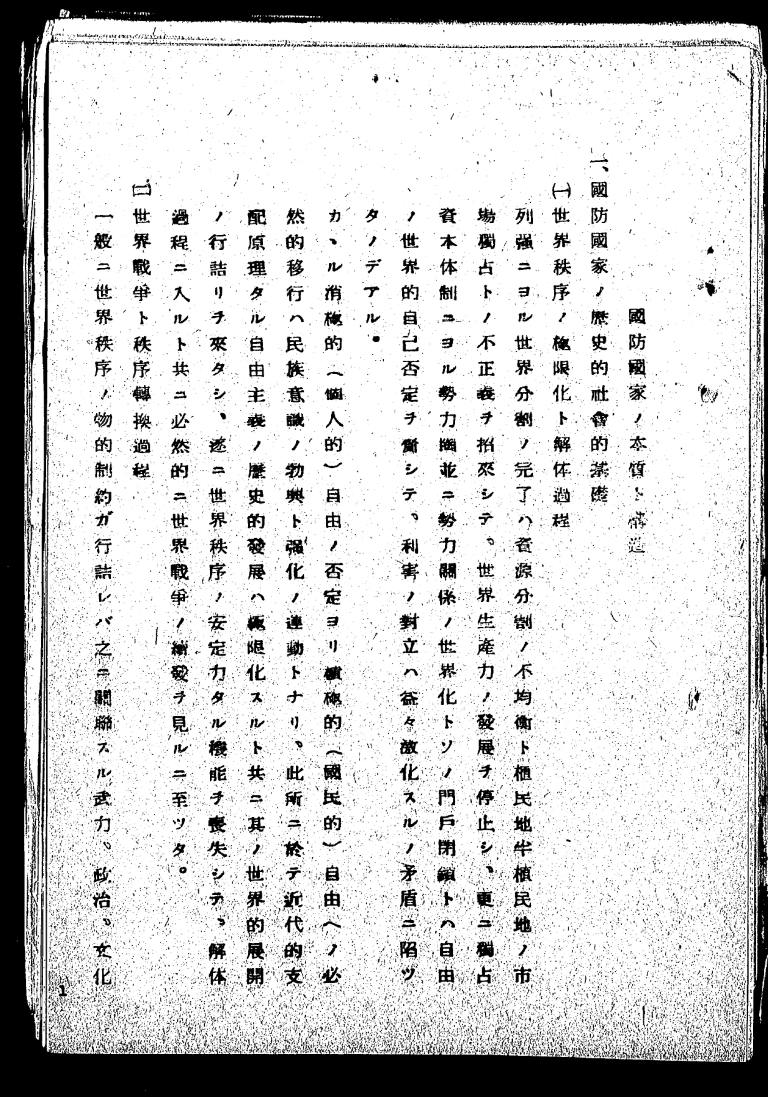 國防國家ノ本質ト構造
一、國防國家ノ歷史的社會的基礎
㈠世界秩序ノ極限化ト解体過程
列强ニヨル世界分割ノ完了ハ資源分割ノ不均衡ト植民地半植民地ノ市
場獨占トノ不正義ヲ招來シテ。世界生產力ノ發展ヲ停止シ、更ニ獨占
資本体制ニヨル勢力圈並ニ勢力關係ノ世界化トソノ門戶閉鎖トハ自由
ノ世界的自己否定ヲ齎シテ。利害ノ對立ハ益々激化スルノ矛盾ニ陷ツ
タノデアル。
カヽル消極的(個人的)自由ノ否定ヨリ積極的(國民的)自由ヘノ必
然的移行ハ民族意識ノ勃興ト强化ノ運動トナリ、此所ニ於テ近代的支
配原理タル自由主義ノ歷史的發展ハ極限化スルト共ニ其ノ世界的展開
ノ行詰リヲ來タシ、遂ニ世界秩序ノ安定力タル機能ヲ喪失シテ、解体
過程ニ入ルト共ニ必然的ニ世界戰爭ノ續發ヲ見ルニ至ツタ。
㈡世界戰爭ト秩序轉換過程
一般ニ世界秩序ノ物的制約ガ行詰レバ之ニ關聯スル武力。政治。文化
1